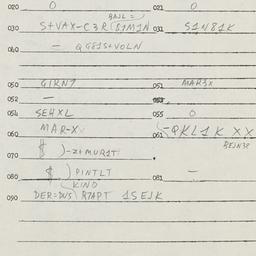 020 0 021 0
BAJL=
030 S+VAX-C3R(S1M1N 031 S1N81K
040 - QG81S+VOLN
050 GIRN7 051 MAR3X
052 -
054 SE4XL 055 0
060 MAR-X 061 -QKL1K XX
BEJN38
070 )-Z+MUR1T
080 ) PINTLT 081 -
KIND
090 DER=DUS R7APT 1SEJK